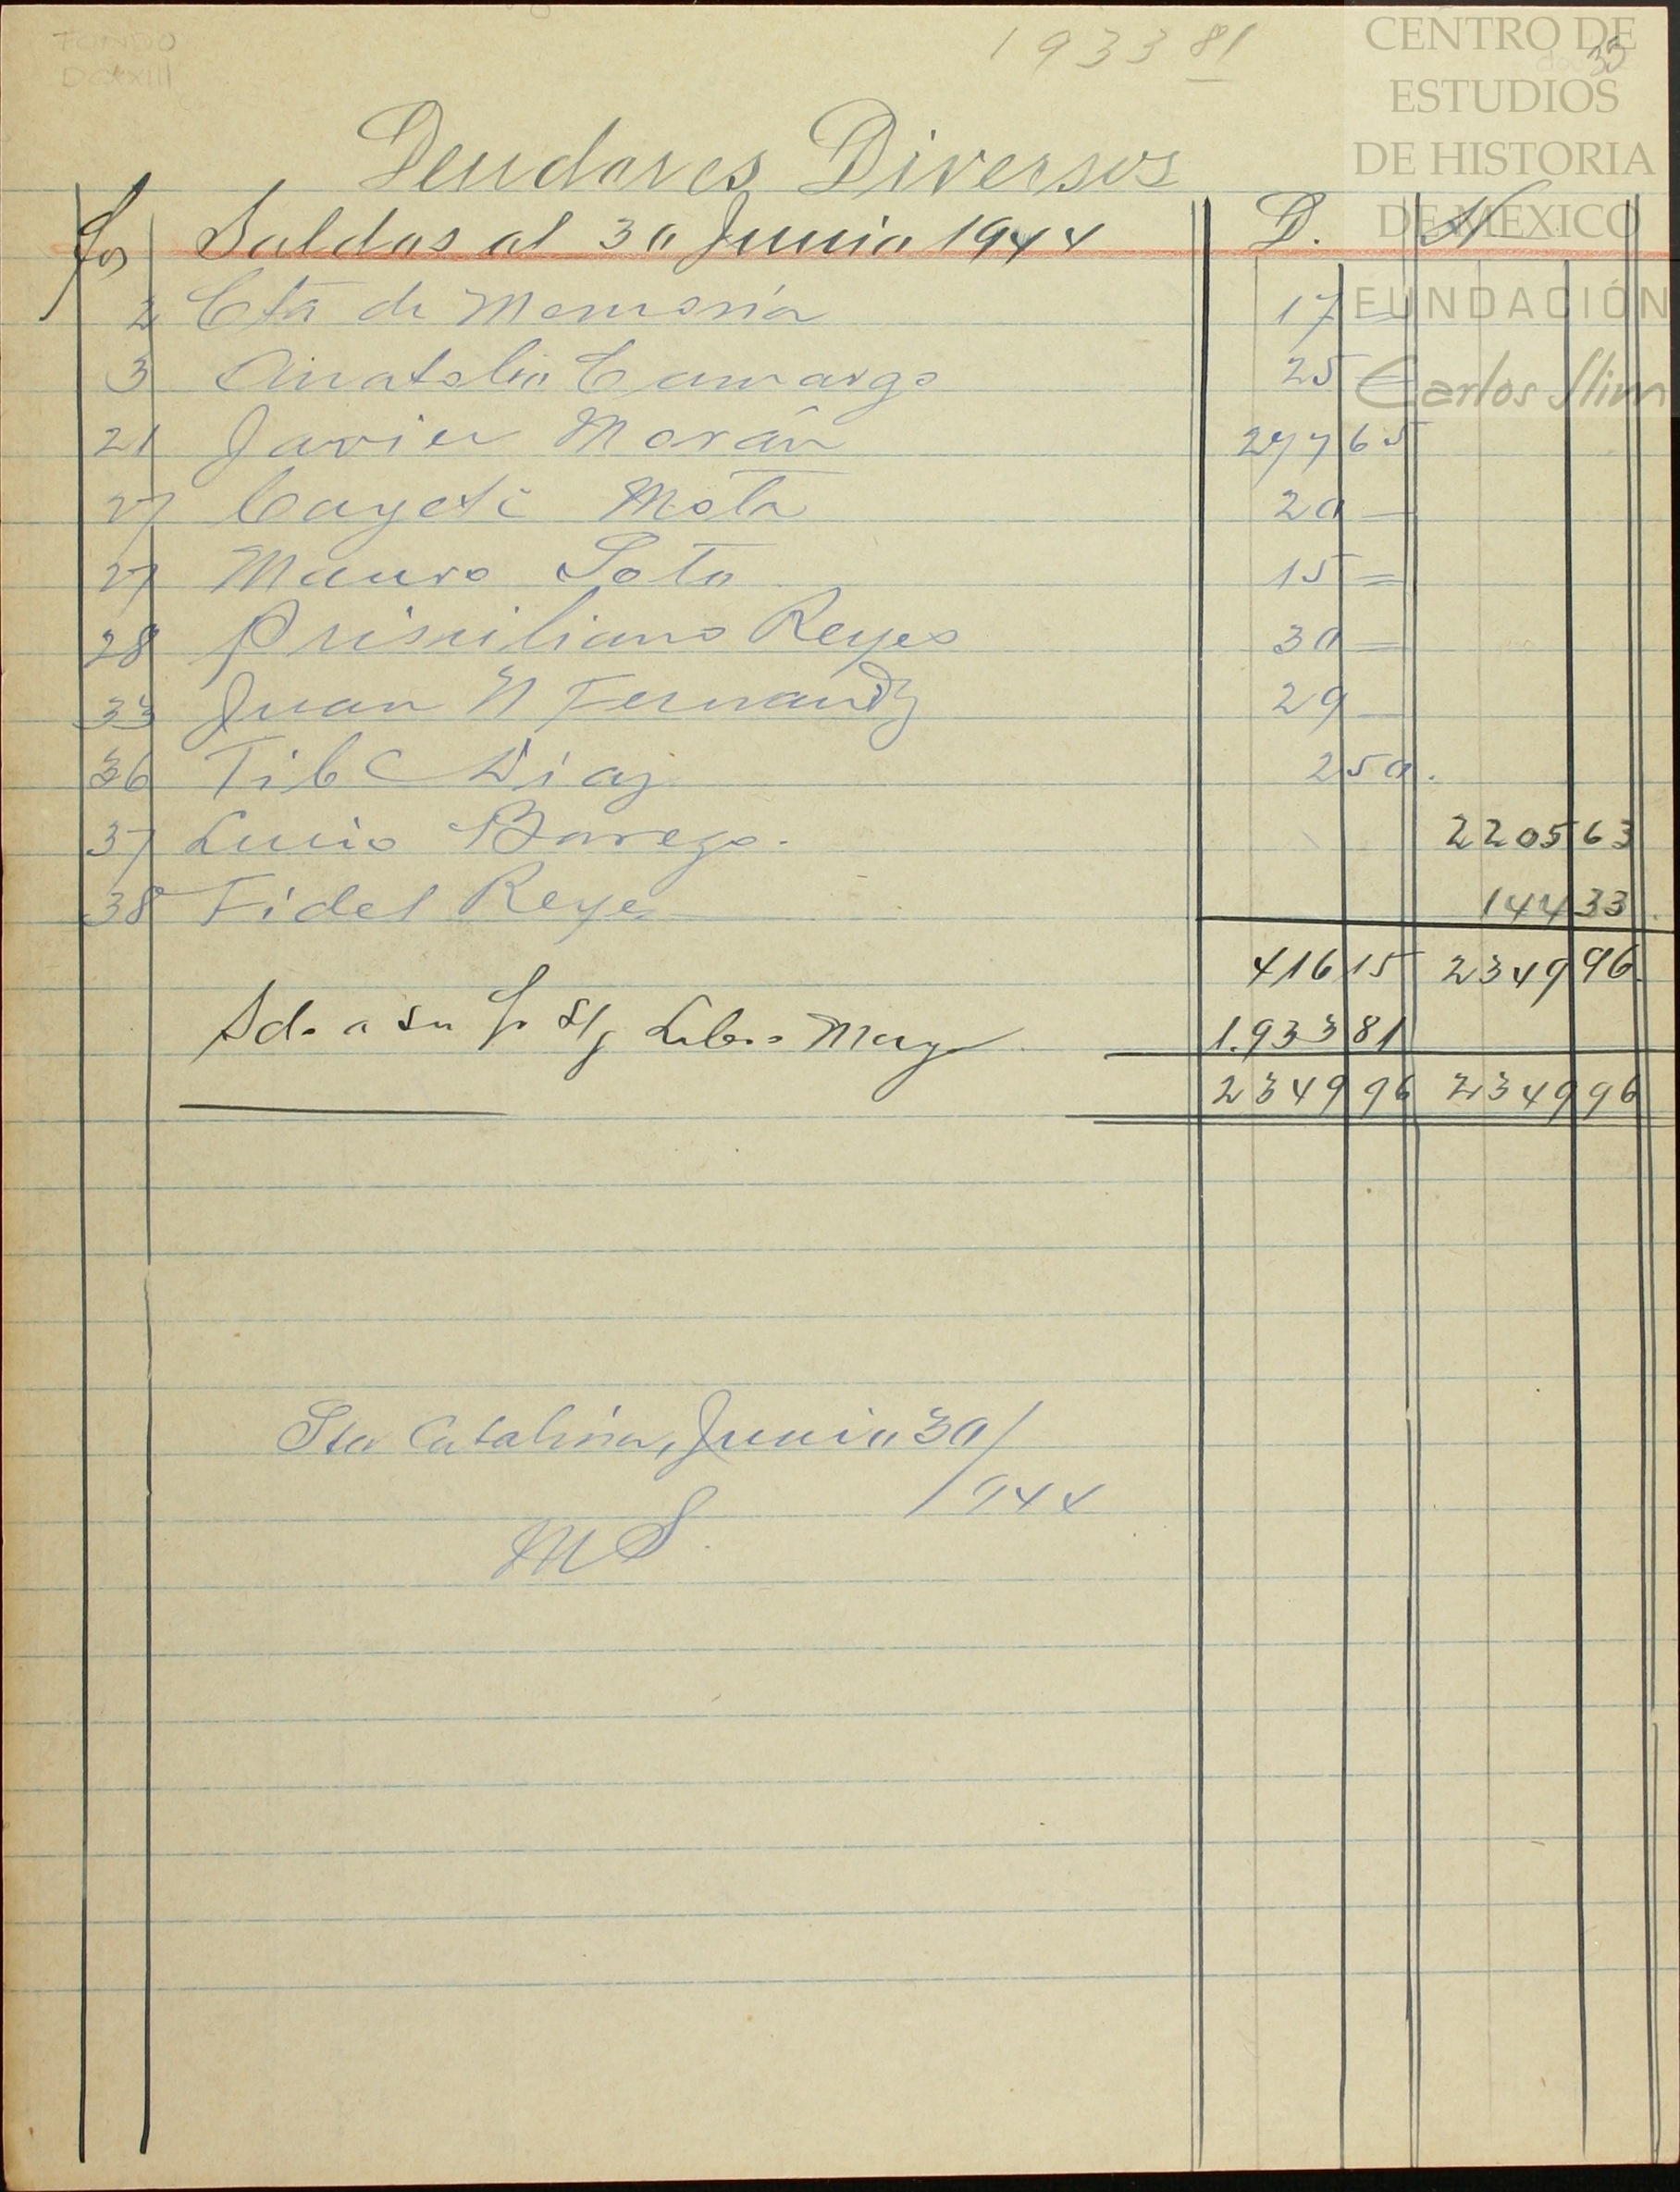 FONDO
DCXXIII
1933 81
35
CENTRO DE
ESTUDIOS
DE HISTORIA
DE MEXICO
FUNDACIÓN
Carlos Slim
Deudores Diversos
fos Saldos al 30 Junio 1944 D. H
2 Cta de Memoria 17 =
3 Anatolio Camargo 25 =
21 Javier Morán 277 65
27 Cayet° Mota 20 —
27 Mauro Soto 15 =
28 Prisciliano Reyes 30 =
33 Juan N Fernandz 29 —
36 Tib C Diaz 2 50.
37 Lucio Borrego. 2205 63
38 Fidel Reyes 144 33
416 15 2349 96
Sdo a su fr s/g Libro Mayr 1.933 81
2349 96 2349 96
Sta Catalina, Junio 30/
/944
MS.